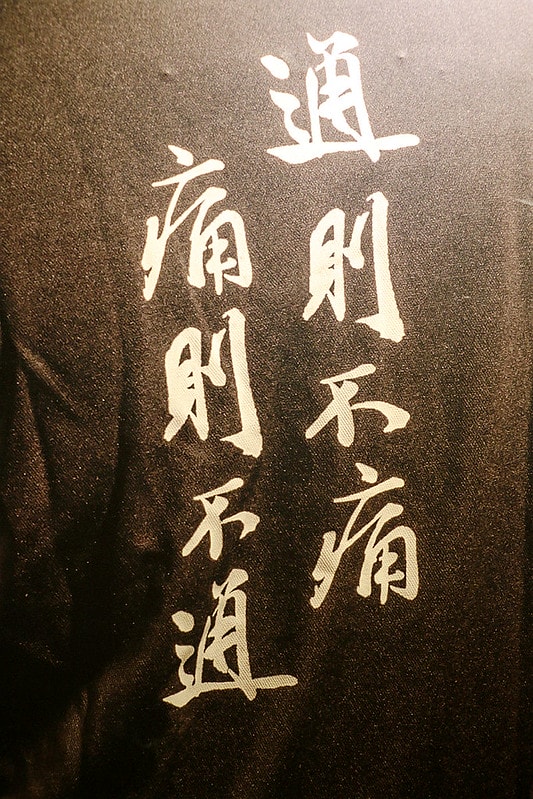 通則不痛
痛則不通